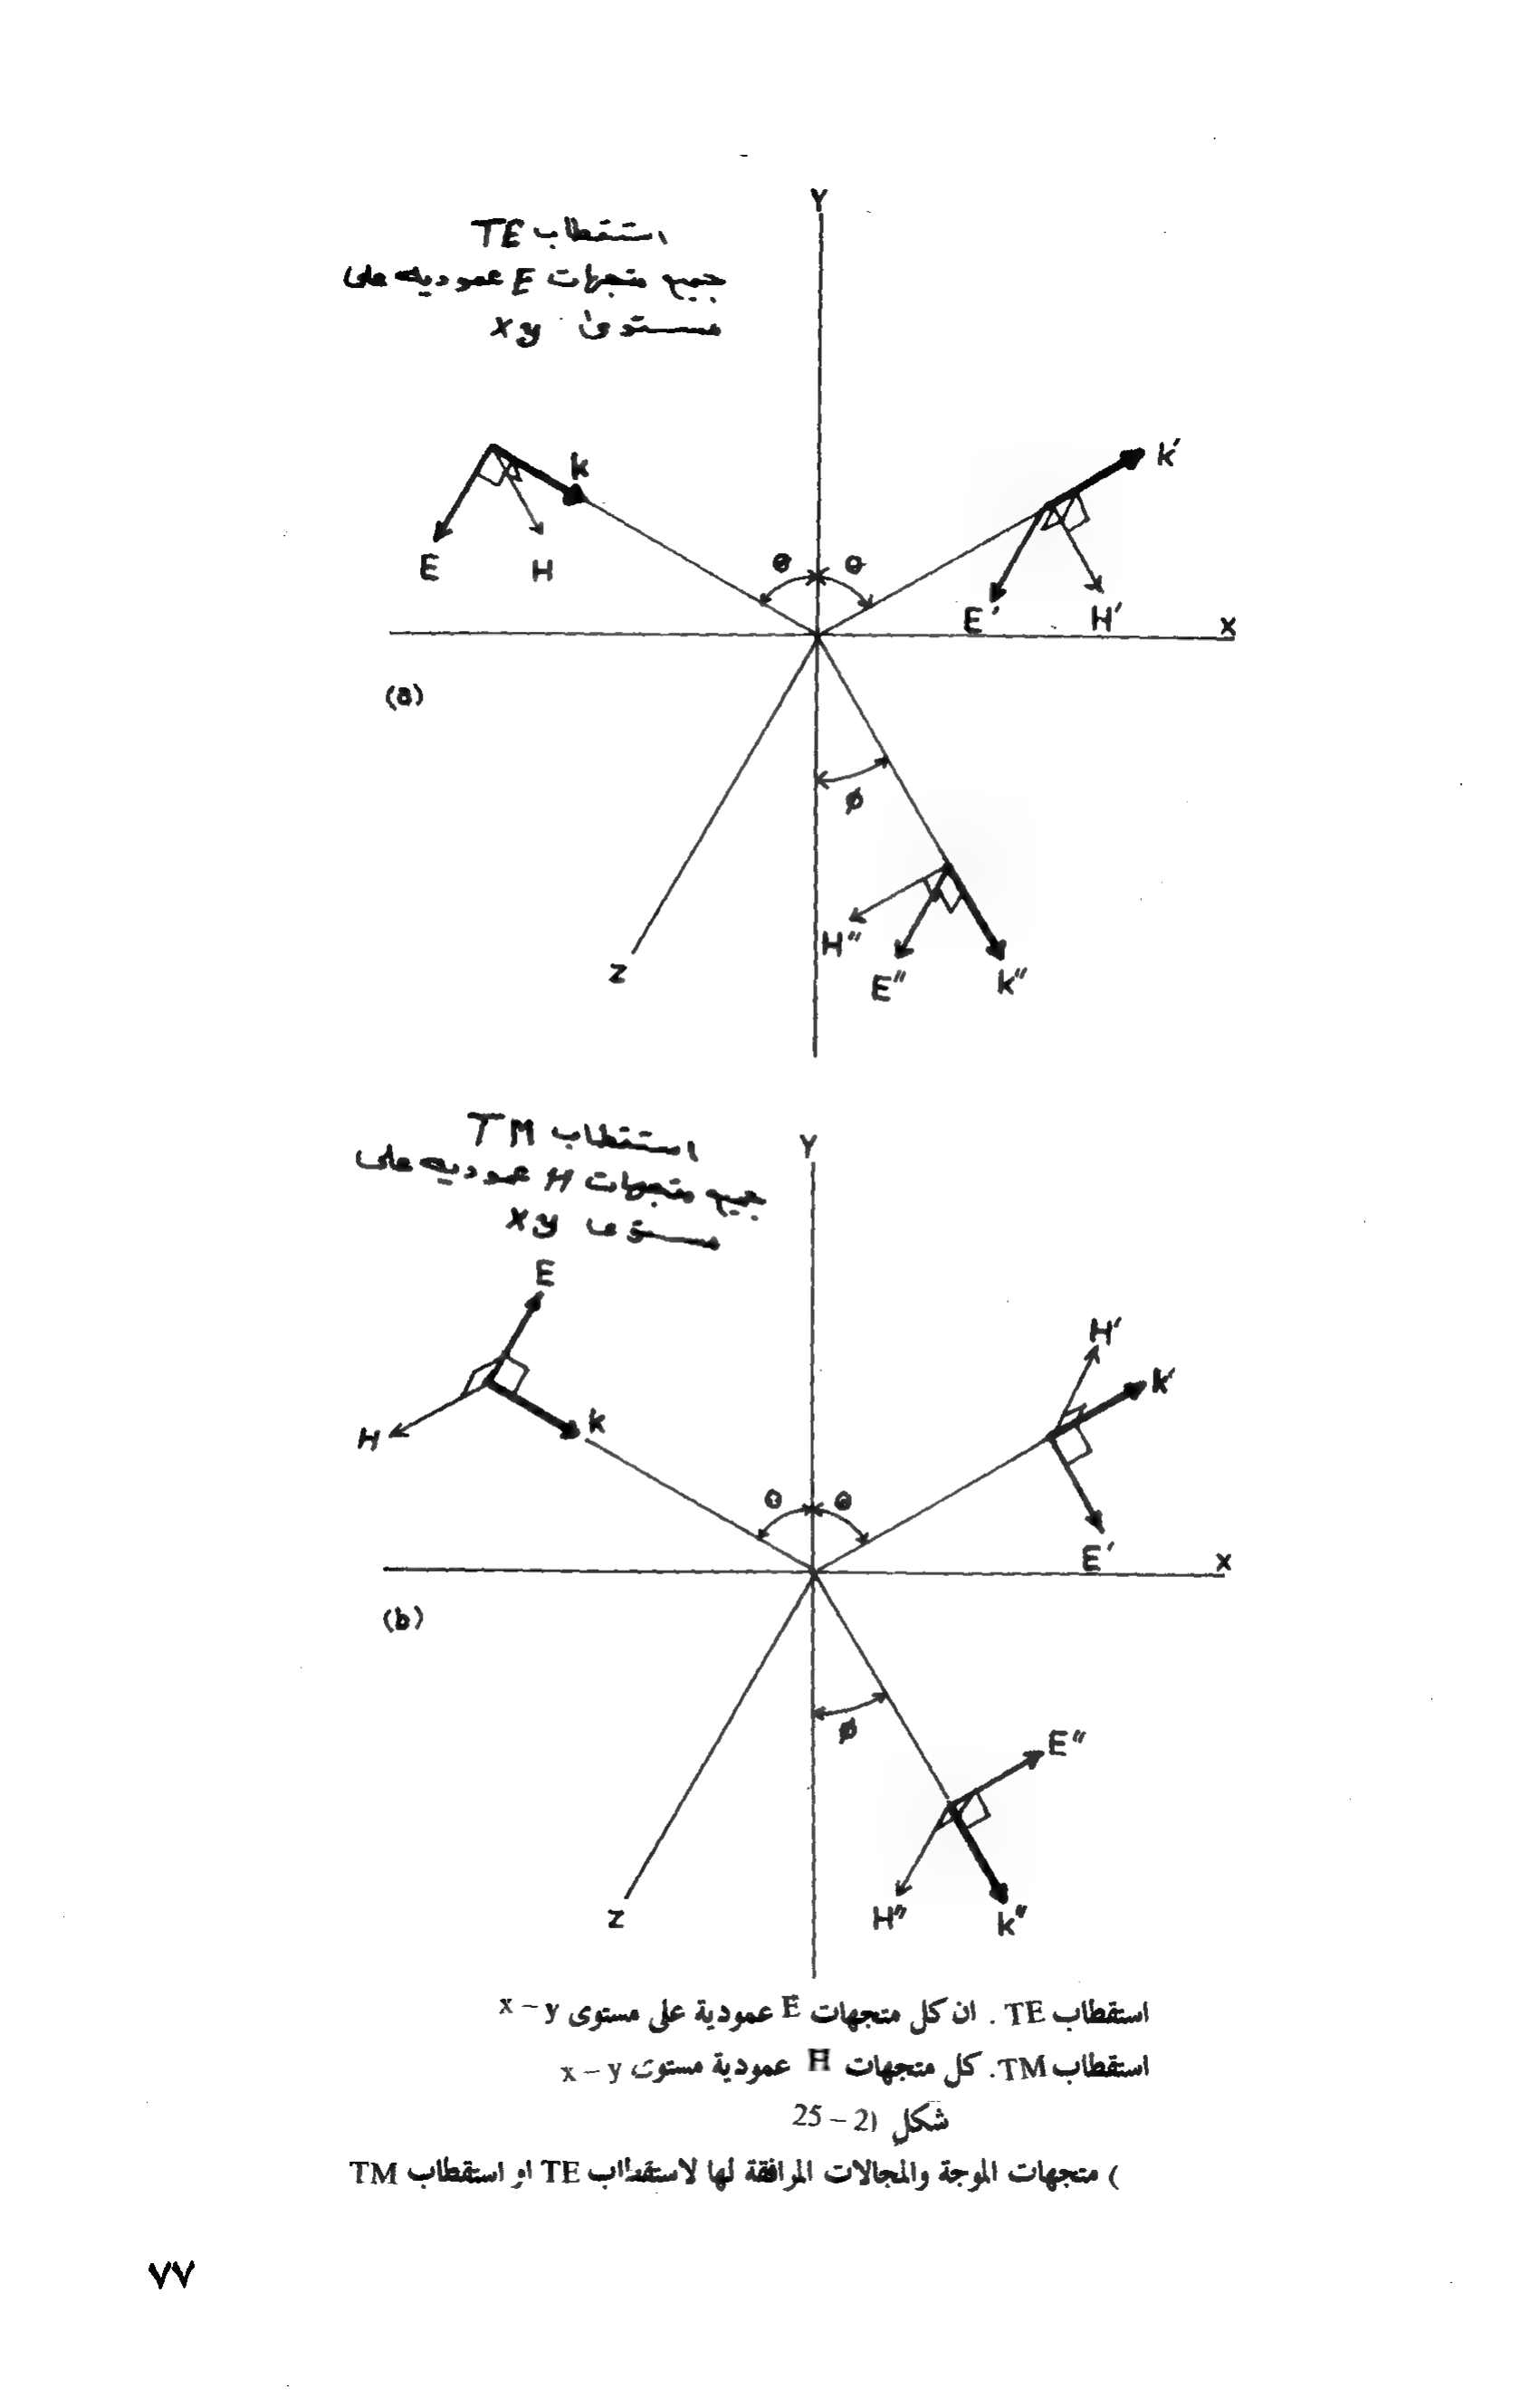 Y
استقطاب TE
جميع متجهات E عمودية على
مستوى xy
k
k′
E
H
θ
θ
E′
H′
x
(a)
φ
H″
E″
k″
Z
استقطاب TM
جميع متجهات H عمودية على
مستوى xy
Y
E
H′
k′
k
H
θ
θ
E′
x
(b)
φ
E″
H″
k″
Z
استقطاب TE . ان كل متجهات E عمودية على مستوى x – y
استقطاب TM. كل متجهات H عمودية مستوى x – y
شكل (2 – 25
) متجهات الموجة والمجالات المرافقة لها لاستقطاب TE او استقطاب TM
٧٧